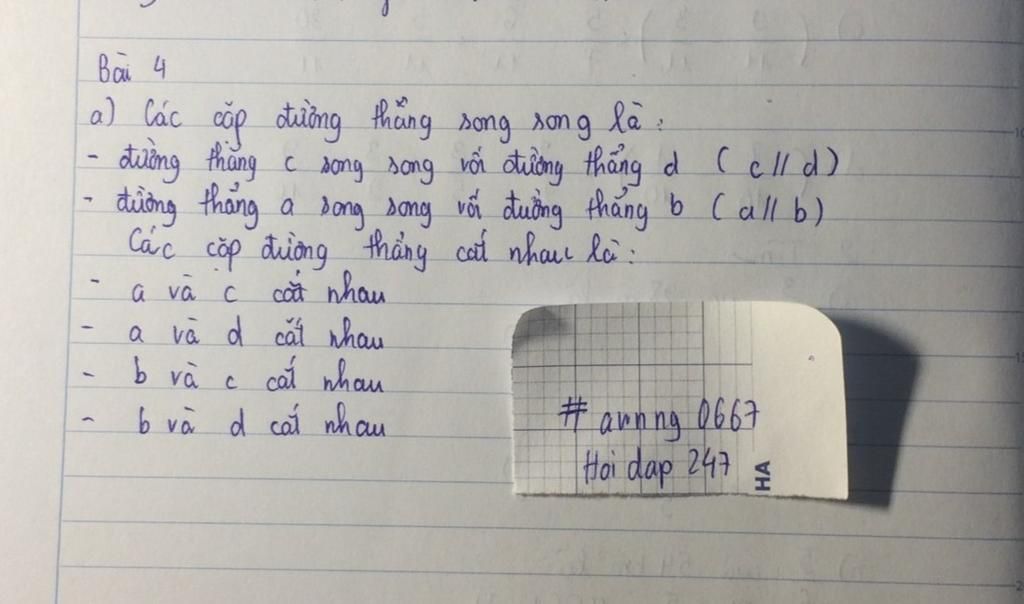 Bài 4
a) Các cặp đường thẳng song song là:
- đường thẳng c song song với đường thẳng d ( c // d )
- đường thẳng a song song với đường thẳng b ( a // b )
Các cặp đường thẳng cắt nhau là:
- a và c cắt nhau
- a và d cắt nhau
- b và c cắt nhau
- b và d cắt nhau
# avnng 0667
Hoi dap 247
HA